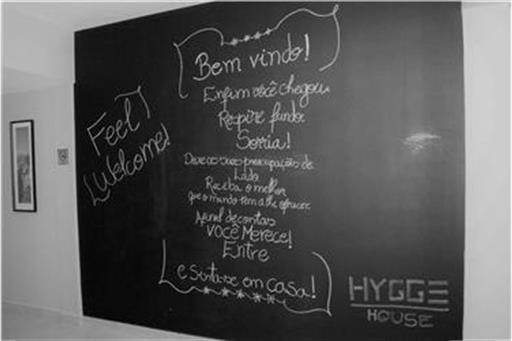 Bem vindo!
Enfim você chegou
Respire fundo
Sorria!
Deixe as suas preocupações de
Lado
Receba o melhor
que o mundo tem a lhe oferecer
Afinal de contas
você Merece!
Entre
e sinta-se em casa!
Feel
Welcome!
HYGGE
HOUSE